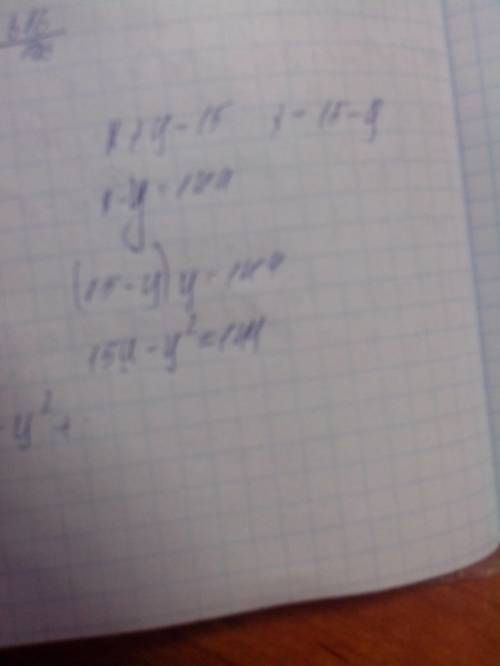 x + y = 15 x = 15 - y
x · y = 144
(15 - y) y = 144
15y - y² = 144
- y² +